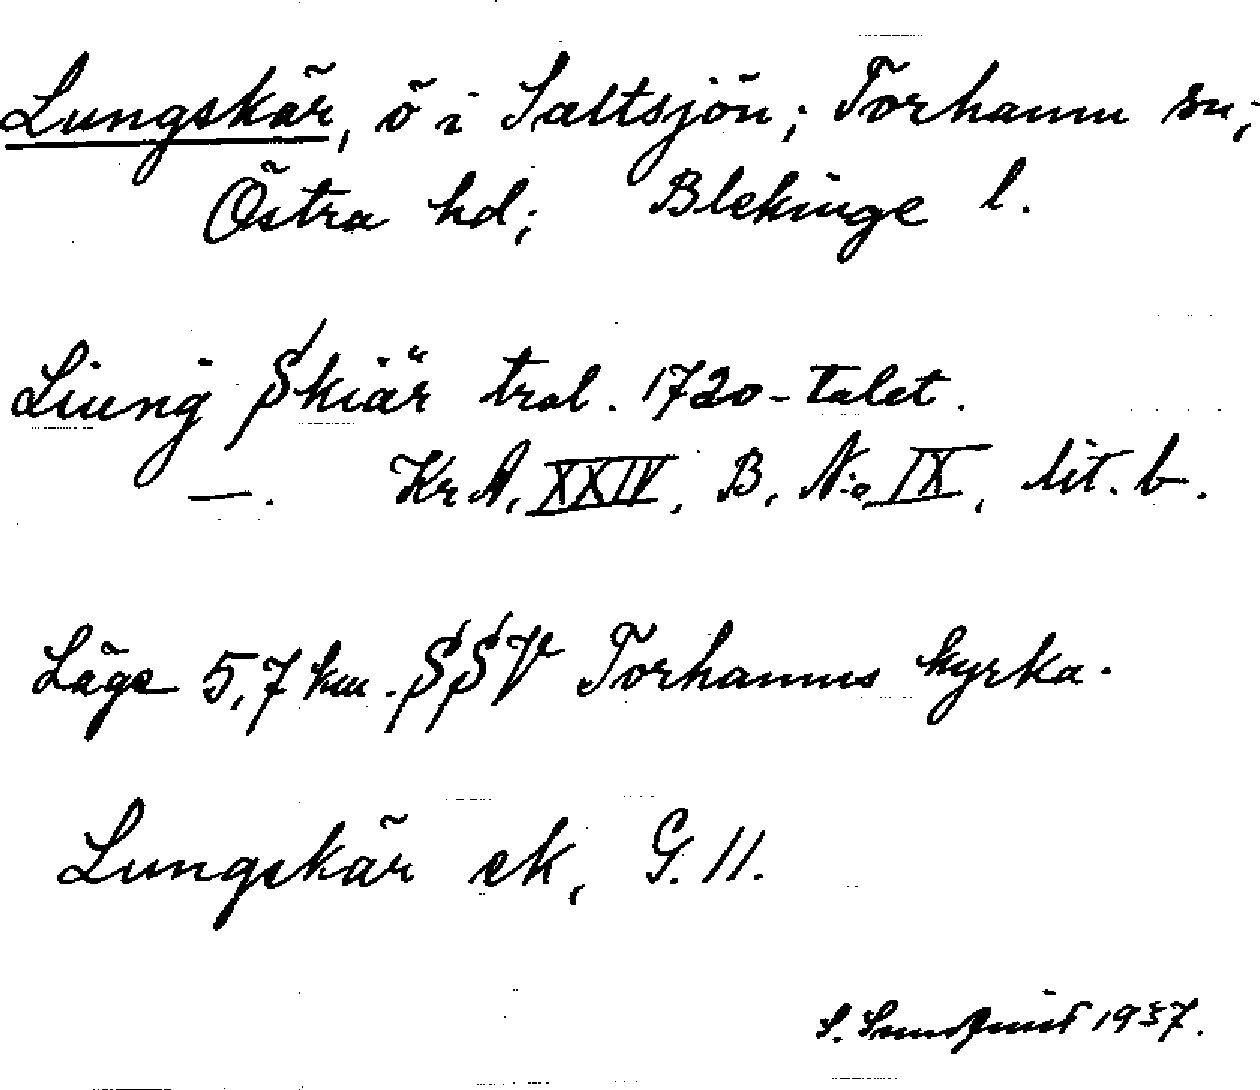 Lungskär, ö i Saltsjön; Torhamn sn;
Östra hd; Blekinge l.
Liung Skiär trol. 1720-talet.
—. KrA, XXIV, B, N:o IX, lit. b.
Läge 5,7 km. SSV Torhamns kyrka.
Lungskär ek, G. 11.
S. Sundquist 1937.